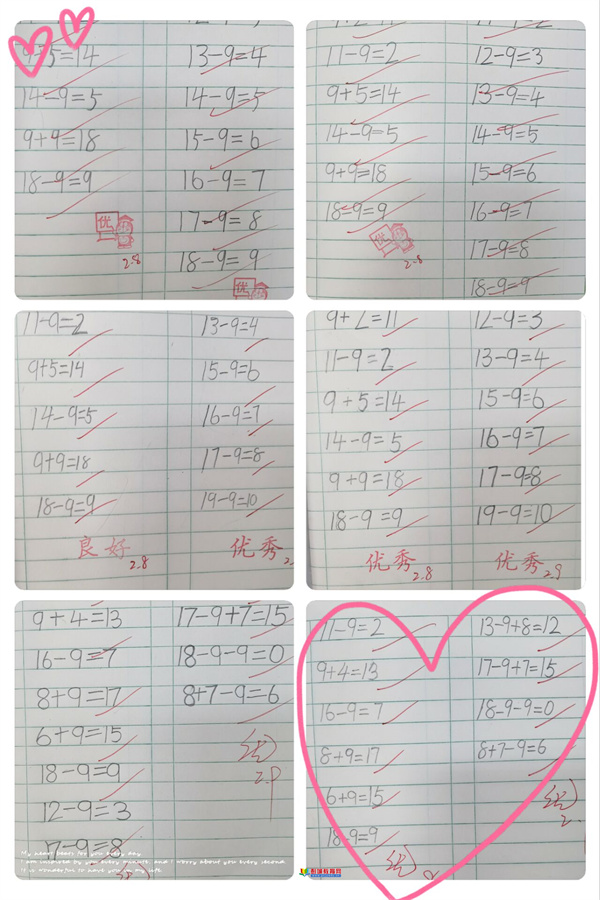 9+5=14
14-9=5
9+9=18
18-9=9
优
2.8
13-9=4
14-9=5
15-9=6
16-9=7
17-9=8
18-9=9
优
11-9=2
9+5=14
14-9=5
9+9=18
18-9=9
优
2.8
12-9=3
13-9=4
14-9=5
15-9=6
16-9=7
17-9=8
18-9=9
11-9=2
9+5=14
14-9=5
9+9=18
18-9=9
良好
2.8
13-9=4
15-9=6
16-9=7
17-9=8
19-9=10
优秀
2.
9+2=11
11-9=2
9+5=14
14-9=5
9+9=18
18-9=9
优秀
2.8
12-9=3
13-9=4
15-9=6
16-9=7
17-9=8
19-9=10
优秀
2.9
9+4=13
16-9=7
8+9=17
6+9=15
18-9=9
12-9=3
17-9=8
17-9+7=15
18-9-9=0
8+7-9=6
优
2.9
11-9=2
9+4=13
16-9=7
8+9=17
6+9=15
18-9=9
优
2
13-9+8=12
17-9+7=15
18-9-9=0
8+7-9=6
优
2.